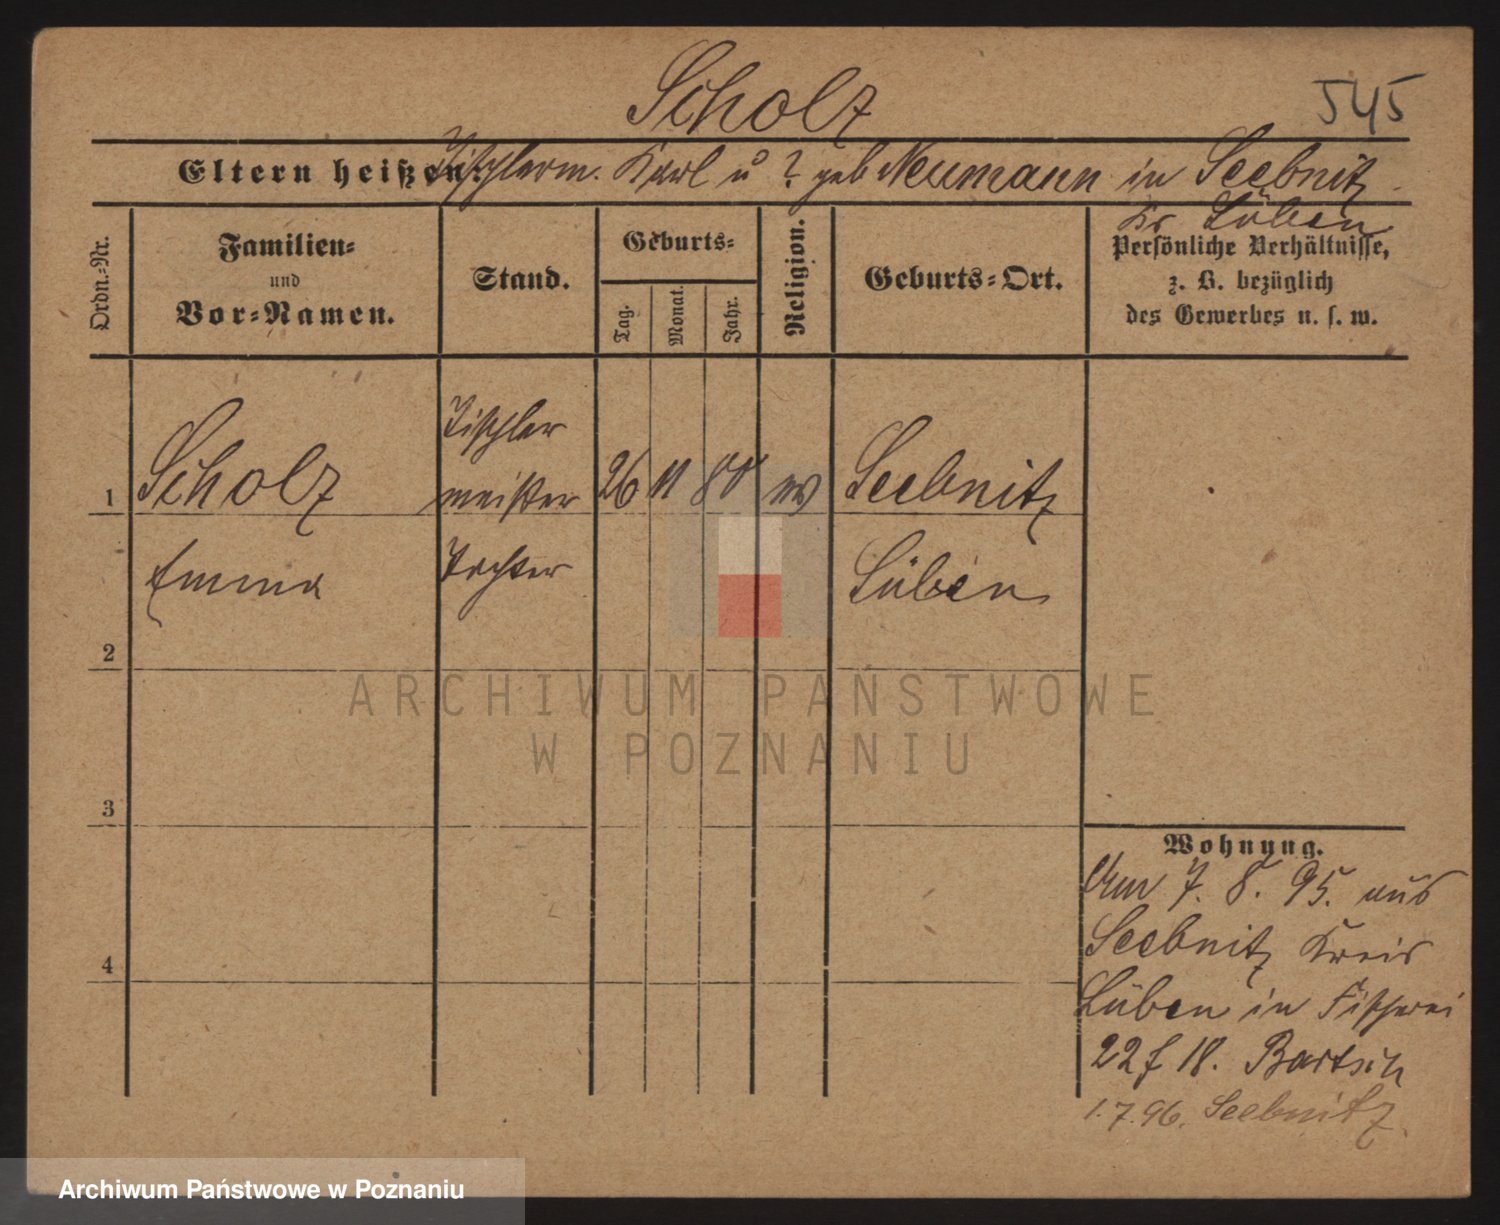 Scholz
545
Eltern heißen: Tischlerm. Karl u ? geb Neumann in Seebnitz
Kr Lüben
Ordn.-Nr.
Familien-
und
Vor-Namen.
Stand.
Geburts-
Tag.
Monat.
Jahr.
Religion.
Geburts-Ort.
Persönliche Verhältnisse,
z. B. bezüglich
des Gewerbes u. s. w.
1
Scholz
Tischler
meister
26 11 80 ev Seebnitz
Emma
Tochter
Lüben
2
3
4
ARCHIWUM PAŃSTWOWE
W POZNANIU
Wohnung.
Am 7. 8. 95. aus
Seebnitz Kreis
Lüben in Fischerei
22 f 18. Bartsch
1.7.96. Seebnitz.
Archiwum Państwowe w Poznaniu